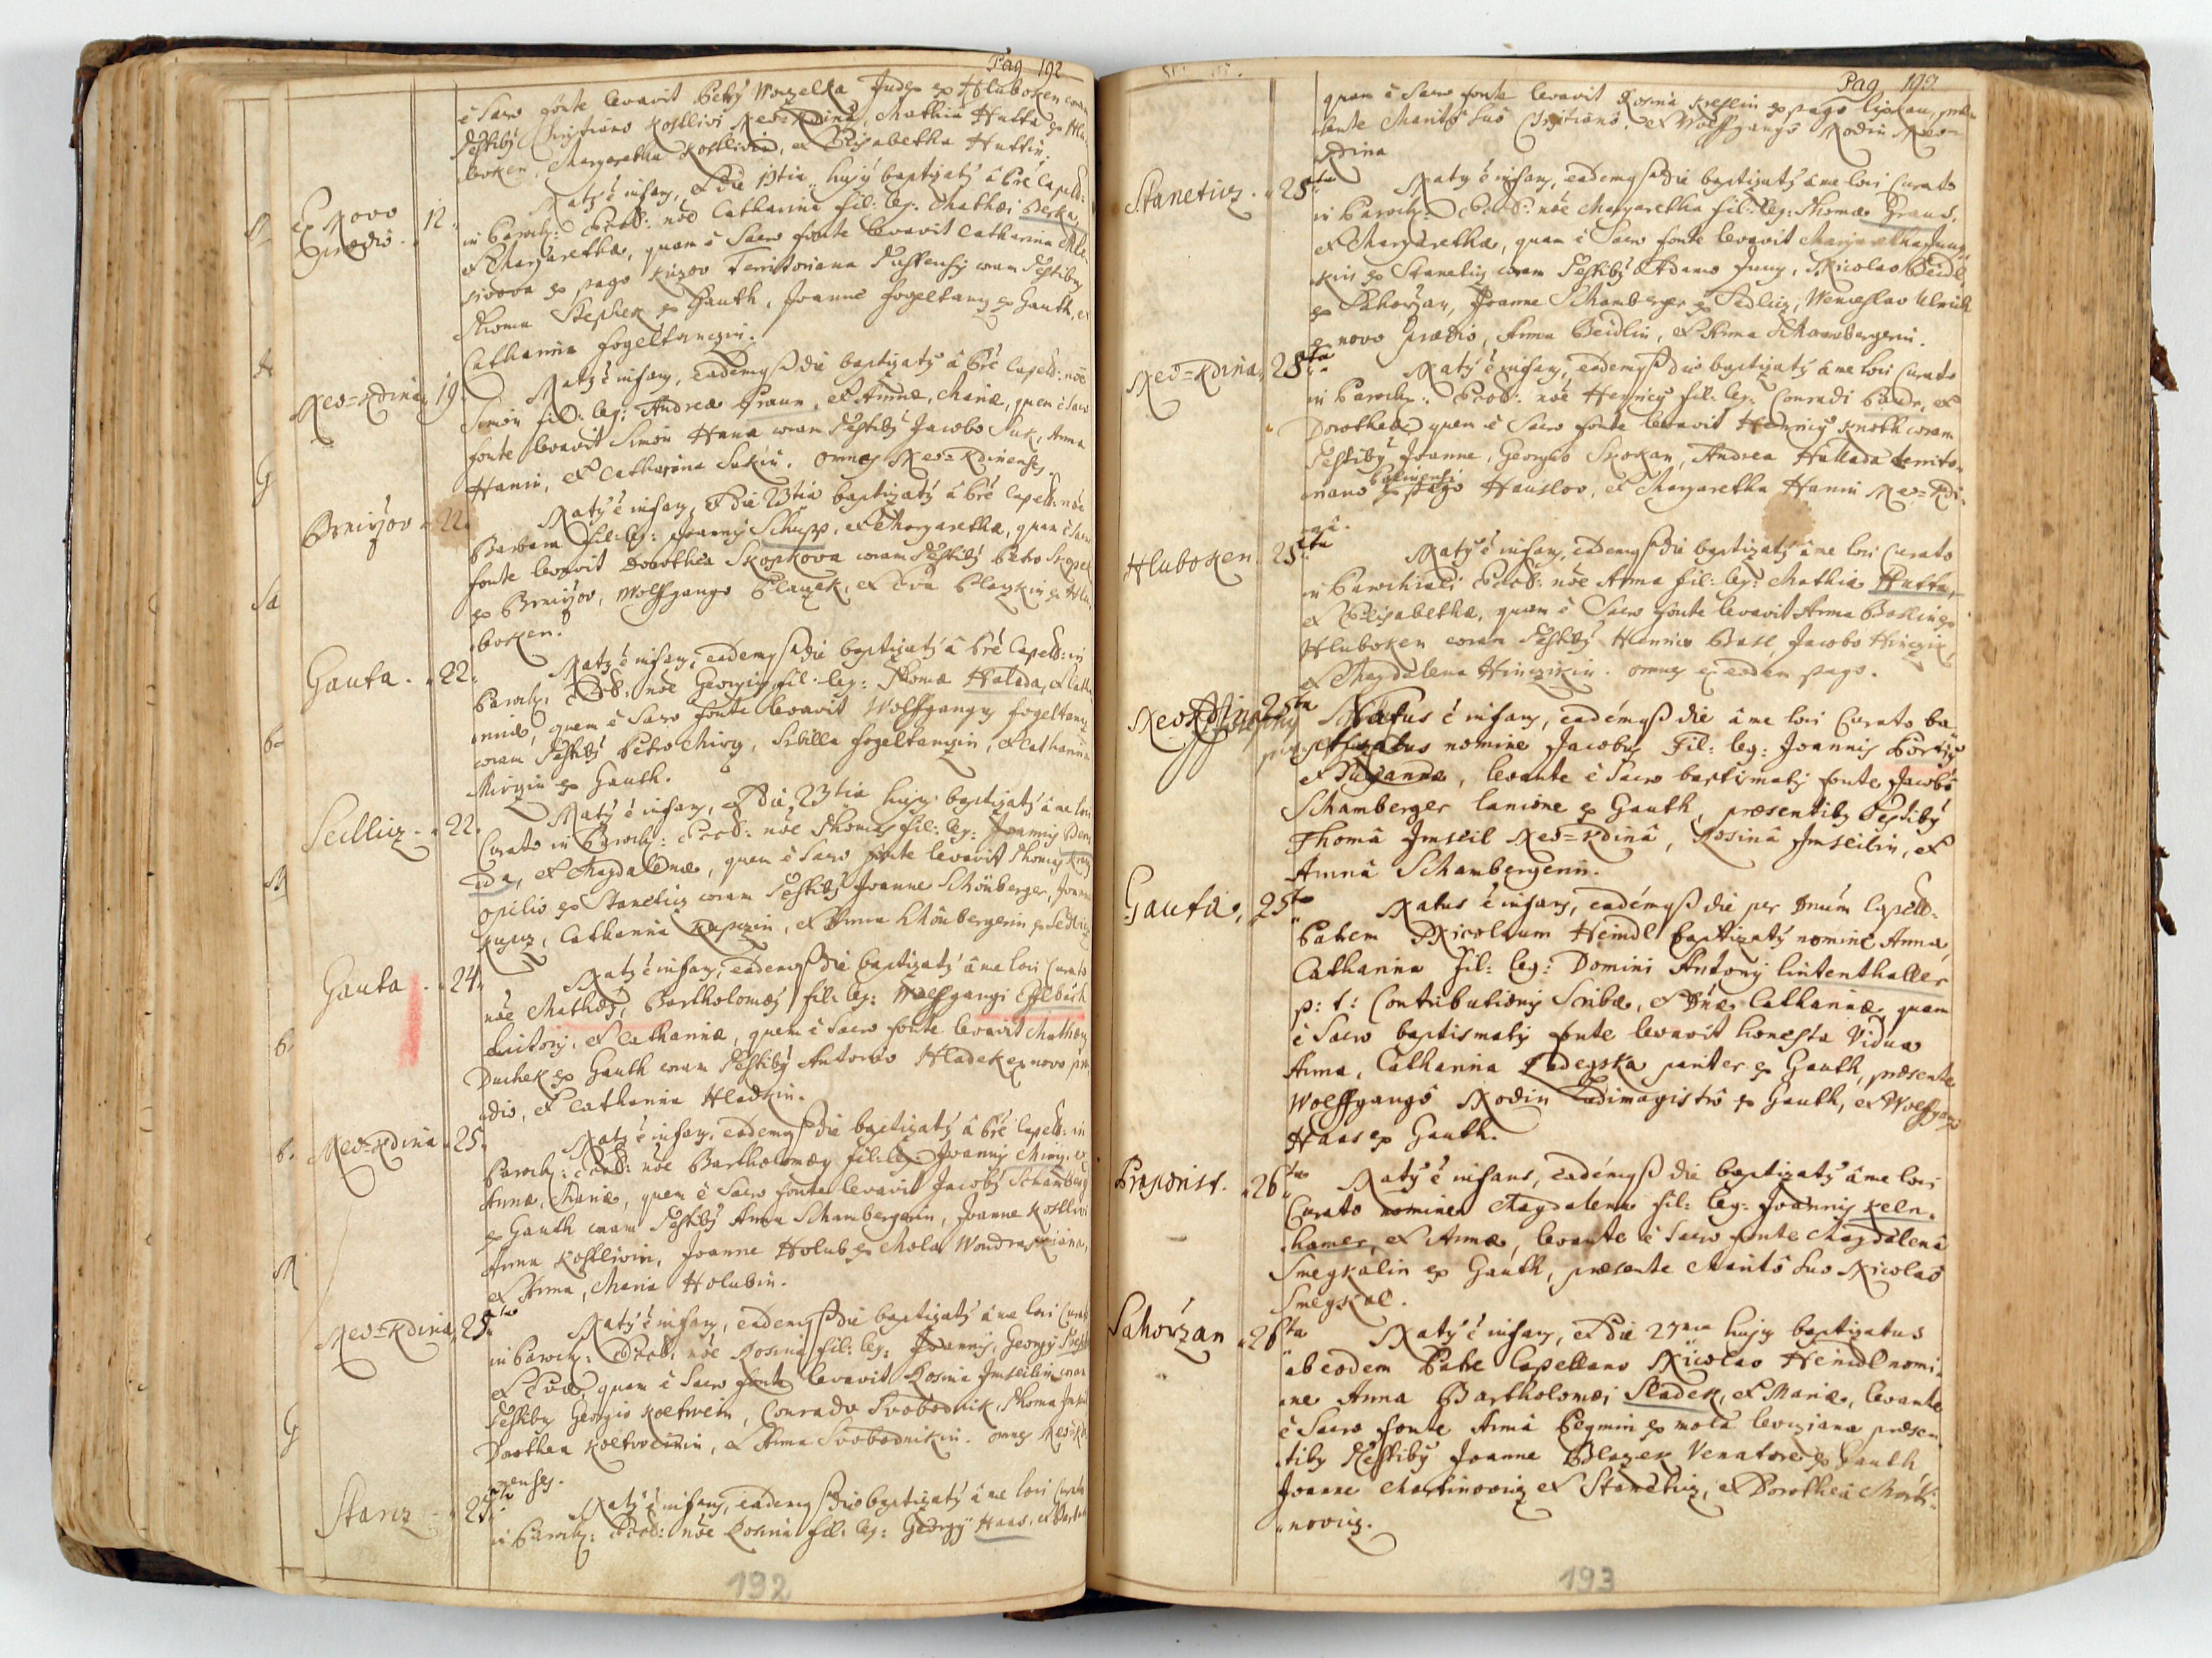 Pag 192
è Sacro fonte levavit Petrus Woyzelka Judex ex Hluboken coram
Testibus Christiano Kostliwi Neo=Kdina, Mathia Hutta ex Hlu-
boken, Margaretha Kostliwin, et Elisabetha Huttin.
Ex Novo
Prædio. 12.
Natus è infans, et die 13tia hujus baptizatus â Pre Capell:
in Paroch: Eccl: nõe Catharina fil: leg: Mathæi Beska,
et Margaretha, quam è Sacro fonte levavit Catharina
ex pago Territoriana coram Testibus
Thoma Stephek ex Gauth, Joanne Fogeltanz ex Gauth, et
Catharina Fogeltanzin.
Neo=Kdina 19.
Natus è infans, eademque die baptizatus â Pre Capell: nõe
Simon fil: leg: Andreæ Braun, et Annæ, Mariæ, quem è Sacro
fonte levavit Simon Hana coram Testibus Jacobo Suk, Anna
Hanin, et Catharina Sukin. omnes Neo=Kdinenses.
G
Brniržov 22.
Natus è infans, et die 23tia baptizatus â Pre Capell: nõe
Barbara fil: leg: Joannis Schuss, et Margaretha, quam è Sacro
fonte levavit Dorothea Skopkova coram Testibus Petro Skopek
ex Brniržov, Wolfgango Blazek, et Eva Blazkin ex Hlu-
boken.
Gauta. 22.
Natus è infans, eademque die baptizatus â Pre Capell: in
Paroch: Eccl: nõe Georgius fil: leg: Thomæ Halada, et Catha-
rinæ, quem è Sacro fonte levavit Wolfgangus Fogeltanz
coram Testibus Petro Mirz, Sibilla Fogeltanzin, et Catharina
Mirzin ex Gauth.
Sedlicz. 22.
Natus è infans, et die 23tia hujus baptizatus â me loci
Curato in Paroch: Eccl: nõe Thomas fil: leg: Joannis
et Magdalenæ, quem è Sacro fonte levavit Thomas
opilio ex Stanetitz coram Testibus Joanne Schönberger, Joanne
Kupcz, Catharina Kupczin, et Anna Schönbergerin ex Sedlicz
Gauta 24.
Natus è infans, eademque die baptizatus â me loci Curato
nõe Mathæus, Bartholomæus fil: leg: Wolfgangi Esslböck
et Catharinæ, quem è Sacro fonte levavit Mathæus
Duchek ex Gauth coram Testibus Antonio Hladek ex novo præ-
dio, et Catharina Hladkin.
Neo=Kdina 25.
Natus è infans, eademque die baptizatus â Pre Capell: in
Paroch: Eccl: nõe Bartholomæus fil: leg: Joannis Mirz, et
Annæ, Mariæ, quem è Sacro fonte levavit Jacobus Schamberger
ex Gauth coram Testibus Anna Schambergerin, Joanne Kostliwi
Anna Kostliwin, Joanne Holub ex Mola Wondraskiana,
et Anna, Maria Holubin.
Neo=Kdina 25ta
Natus è infans, eademque die baptizatus â me loci Curato
in Paroch: Eccl: nõe Rosina fil: leg: Joannis, Georgy
et Evæ, quam è Sacro fonte levavit Rosina Imseilin coram
Testibus Georgio Koltwein, Conrado Svobodnik, Thoma Imseil
Dorothea Koltweinin, et Anna Svobodnikin. omnes Neo=Kdi-
nenses.
Stanz 25ta
Natus è infans, eademque die baptizatus â me loci Curato
in Paroch: Eccl: nõe Rosina fil: leg: Georgy Haas, et
192
Pag 193
quam è Sacro fonte levavit Rosina Kreslin ex pago lipkau, præ-
sente Marito Suo Christiano, et Wolfgango Modin Neo-
Kdina
Stanetitz. 25ta
Natus è infans, eademque die baptizatus â me loci Curato
in Paroch: Eccl: nõe Margaretha fil: leg: Thomæ Braun,
et Margaretha, quam è Sacro fonte levavit Margaretha
ex Stanetitz coram Testibus Adamo Jung, Nicolao Beidl
ex Sahoržan, Joanne Schamberger ex Sedlicz, Wenceslao Ulrich
ex novo prædio, Anna Beidlin, et Anna Schambergerin.
Neo=Kdina. 25ta
Natus è infans, eademque die baptizatus â me loci Curato
in Paroch: Eccl: nõe Henricus fil: leg: Conradi et
Dorothea, quem è Sacro fonte levavit Henricus Knoth coram
Testibus Joanne, Georgio Skokan, Andrea Hallada territo-
riano ex pago Hauslov, et Margaretha Hanin Neo=Kdi-
na.
Hluboken 25ta
Natus è infans, eademque die baptizatus â me loci Curato
in Parochiali Eccl: nõe Anna fil: leg: Mathiæ Hutta,
et Elisabetha, quam è Sacro fonte levavit Anna Baslin ex
Hluboken coram Testibus Henrico Basl, Jacobo Hinczik,
et Magdalena Hinczikin. omnes ex eodem pago.
Neo Kdina 25ta
Natus è infans, eadémque die â me loci Curato ba-
ptizatus nomine Jacobus Fil: leg: Joannis
et Susannæ, levante è Sacro baptismatis fonte Jacobô
Schamberger lanione ex Gauth, præsentibus Testibus
Thomâ Imseil Neo=Kdinâ, Rosinâ Imseilin, et
Annâ Schambergerin.
Gauta. 25ta
Natus è infans, eadémque die per Dnum Capell:
Patrem Nicolaum Heindl baptizatus nomine Anna,
Catharina fil: leg: Domini Antony lintenthaller
p: t: Contributionis Scribæ, et Dnæ Catharinæ quam
è Sacro baptismatis fonte levavit honesta Vidua
Anna, Catharina Ladegska pariter ex Gauth, præsente
Wolffgangô Modin Ludimagistrô ex Gauth, et Wolfgango
Haas ex Gauth.
26ta
Natus è infans, eadémque die baptizatus â me loci
Curato nomine Magdalena fil: leg: Joannis Keln-
hamer, et Annæ, levante è Sacro fonte Magdalenâ
Smegkalin ex Gauth, præsente Maritô Suo Nicolaô
Smegkal.
Sahoržan 26ta
Natus è infans, et die 27ma hujus baptizatus
ab eodem Patre Capellano Nicolao Heindl nomi-
ne Anna Bartholomæi Sladek, et Mariæ, levante
è Sacro fonte Annâ Pegmin ex mola leviziana præsen-
tibus Testibus Joanne Blazek Venatore ex Gauth
Joanne Martinowitz ex Stanetitz, et Dorotheâ Marti-
nowitz.
193